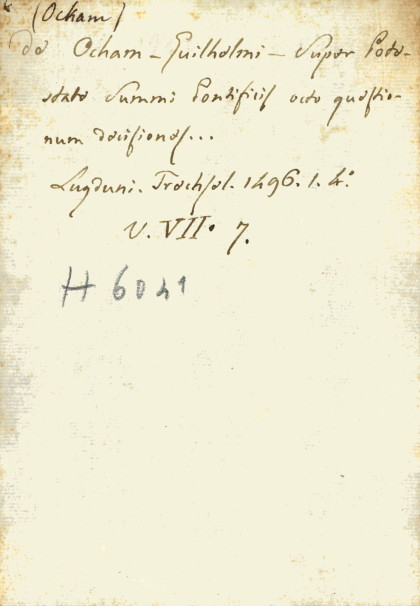 (Ocham)
de Ocham - Guilhelmi - Super Pote-
state Summi Pontificis octo questio-
num decisiones...
Lugduni. Trechsel. 1496. 1. 4.°
V. VII. 7.
H 6041